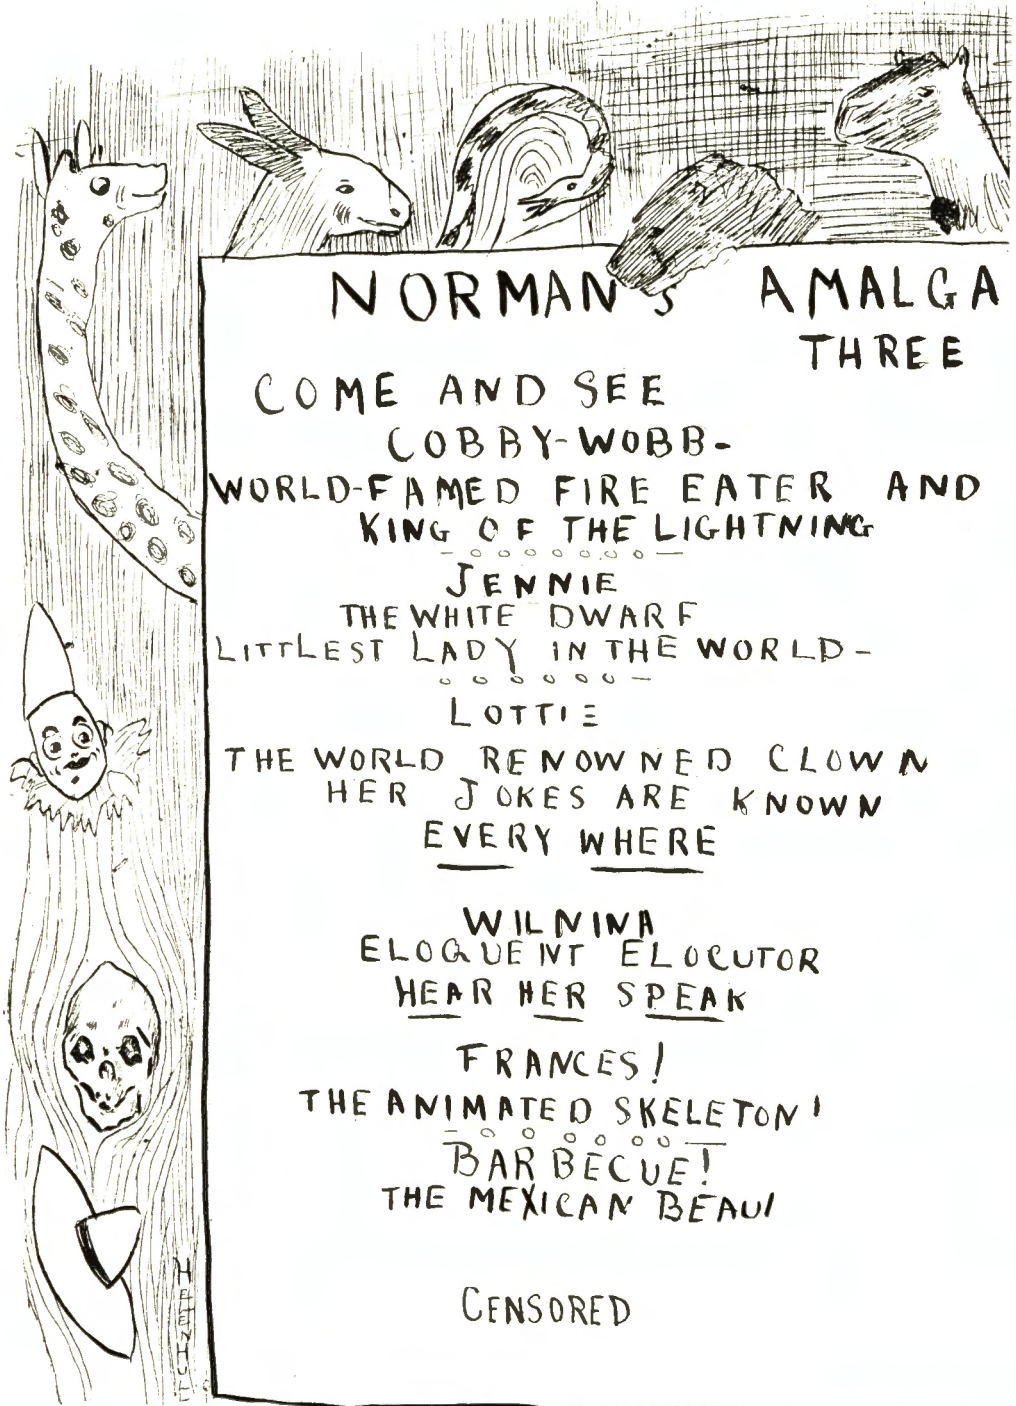 NORMAN'S AMALGA
THREE
COME AND SEE
COBBY-WOBB-
WORLD-FAMED FIRE EATER AND
KING OF THE LIGHTNING
JENNIE
THE WHITE DWARF
LITTLEST LADY IN THE WORLD-
LOTTIE
THE WORLD RENOWNED CLOWN
HER JOKES ARE KNOWN
EVERY WHERE
WILNINA
ELOQUENT ELOCUTOR
HEAR HER SPEAK
FRANCES!
THE ANIMATED SKELETON!
BARBECUE!
THE MEXICAN BEAU!
CENSORED
HELEN HULL